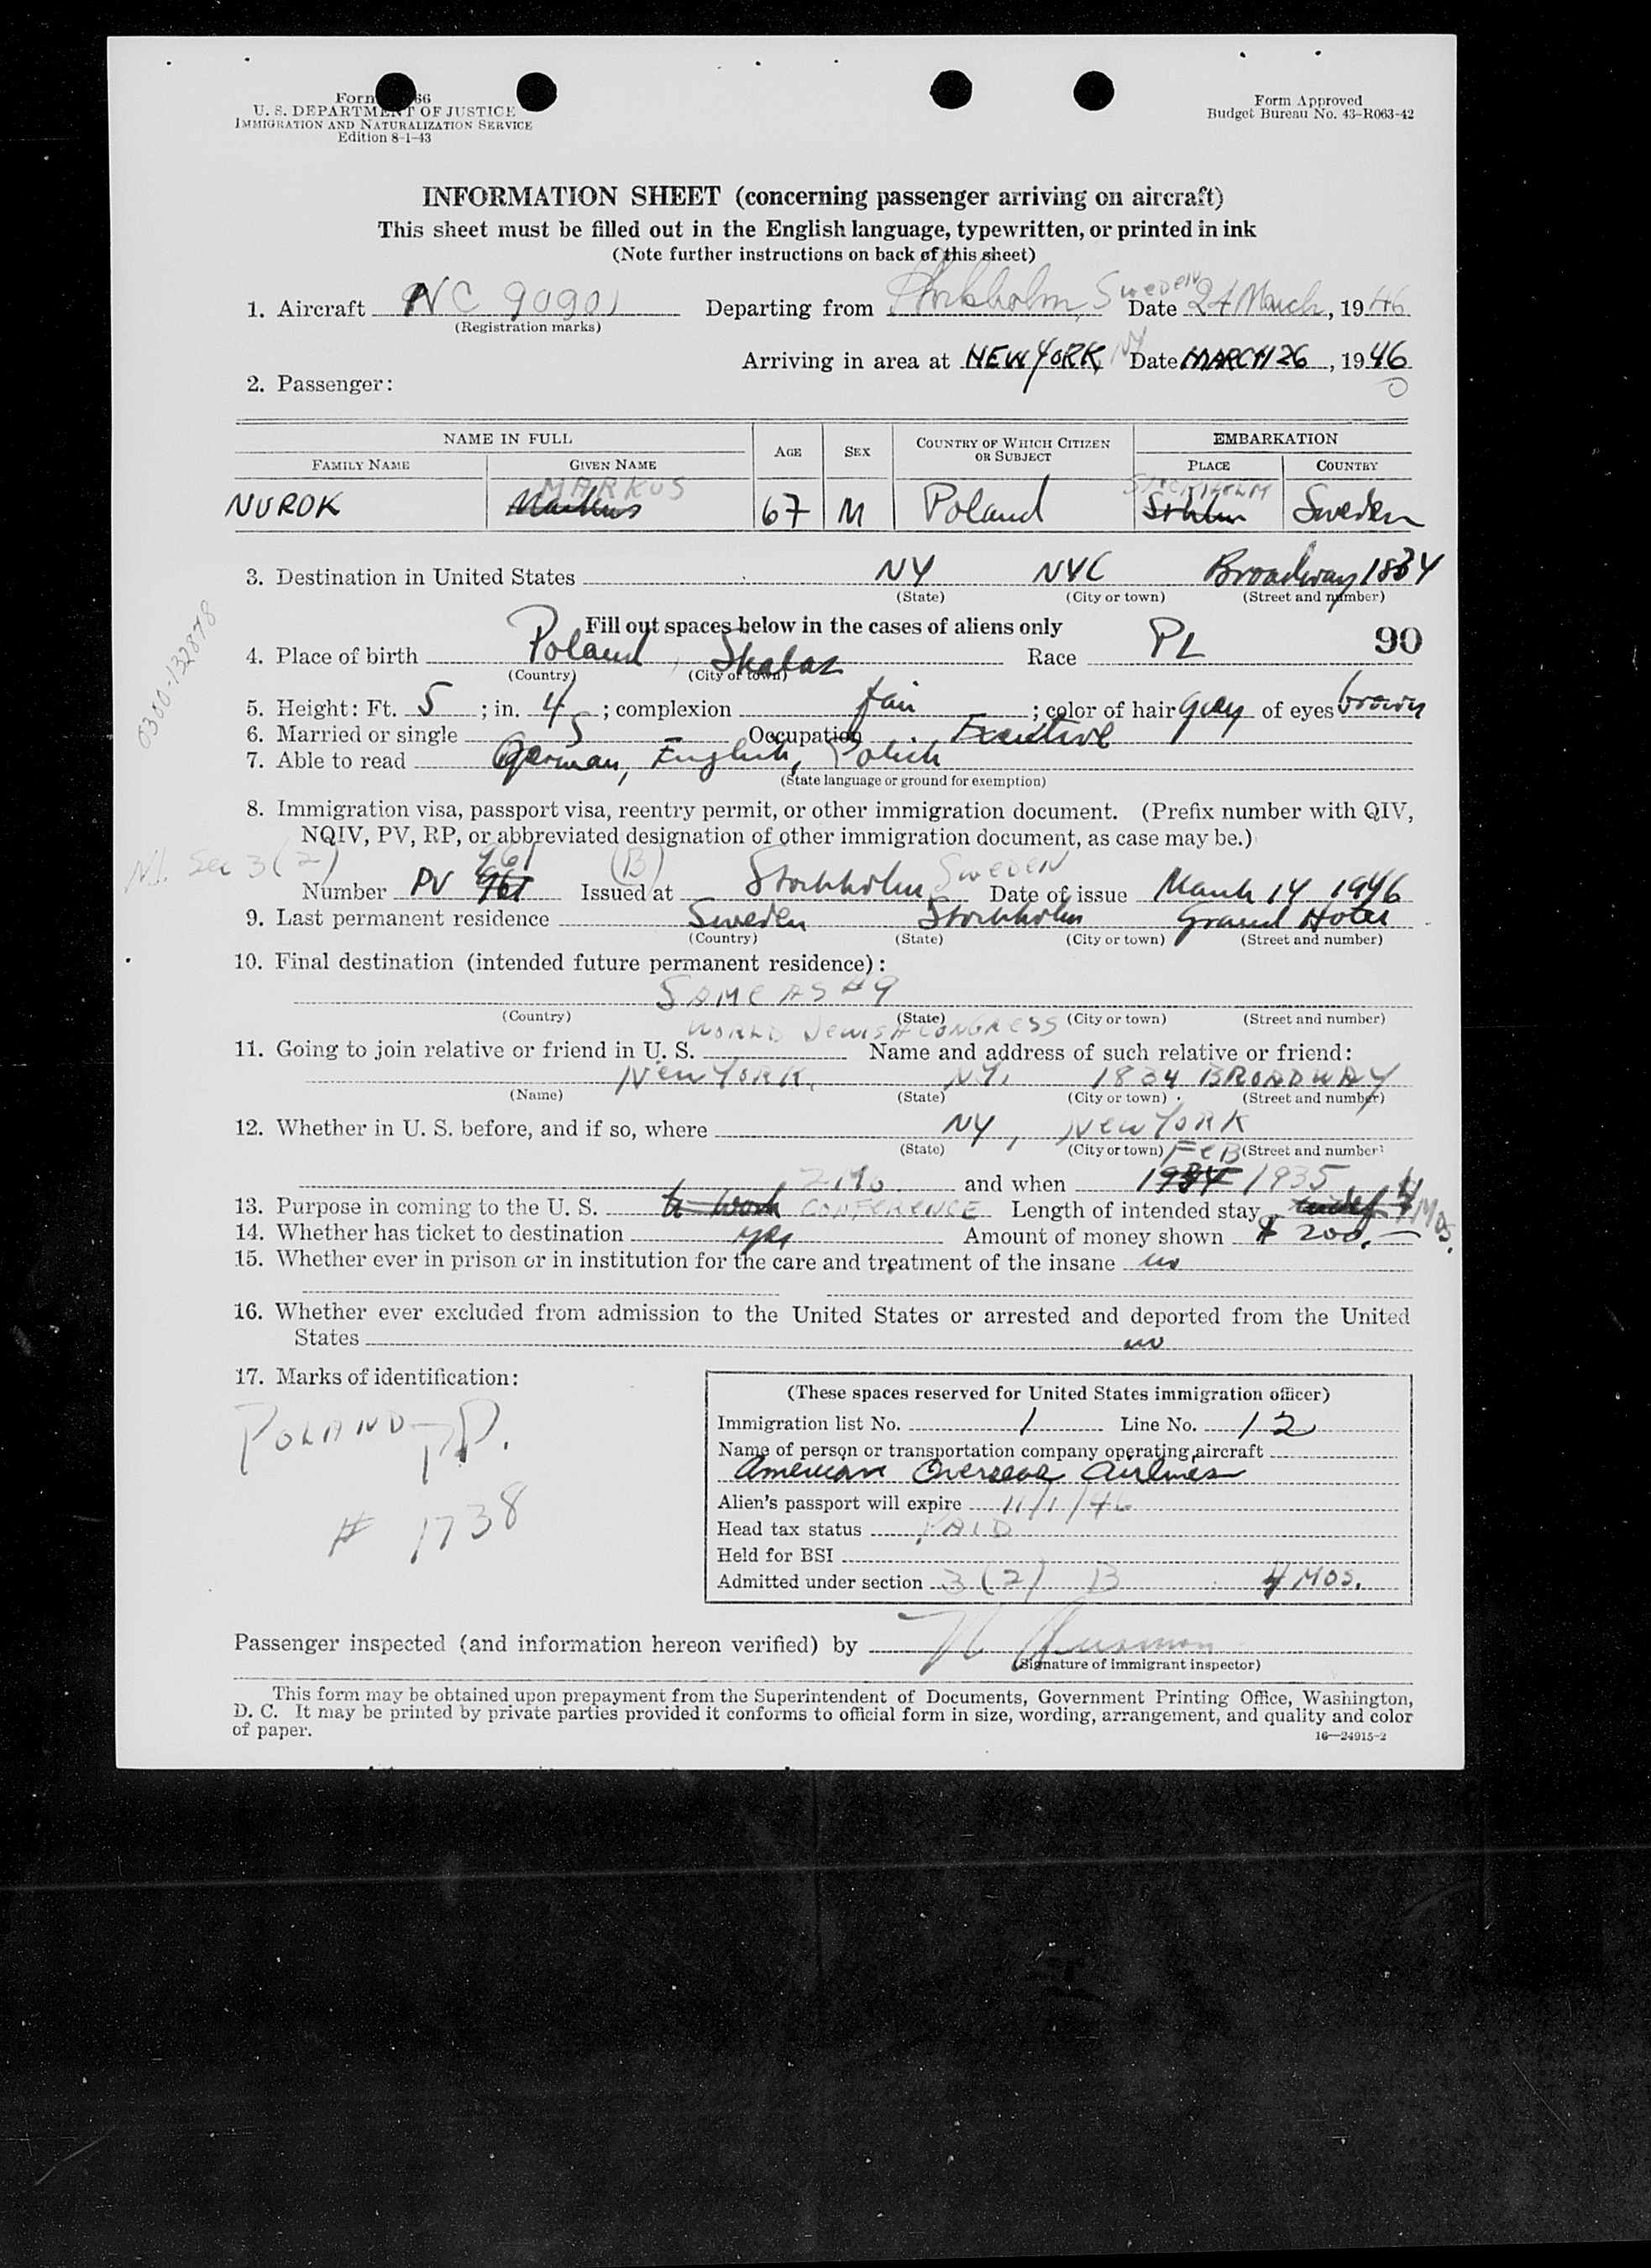 Form 66
U. S. DEPARTMENT OF JUSTICE
IMMIGRATION AND NATURALIZATION SERVICE
Edition 8-1-43
Form Approved
Budget Bureau No. 43-R063-42
INFORMATION SHEET (concerning passenger arriving on aircraft)
This sheet must be filled out in the English language, typewritten, or printed in ink
(Note further instructions on back of this sheet)
1. Aircraft NC 90901 Departing from Stockholm, Sweden Date 24 March, 1946
(Registration marks)
Arriving in area at NEW YORK, NY Date MARCH 26, 1946
2. Passenger:
NAME IN FULL AGE SEX COUNTRY OF WHICH CITIZEN OR SUBJECT EMBARKATION
FAMILY NAME GIVEN NAME PLACE COUNTRY
MARKUS STOCKHOLM
NUROK Markus 67 M Poland Sthlm Sweden
3. Destination in United States NY NYC Broadway 1834
(State) (City or town) (Street and number)
Fill out spaces below in the cases of aliens only
4. Place of birth Poland, Skalat Race PL 90
(Country) (City or town)
0300-132878
5. Height: Ft. 5; in. 4; complexion fair; color of hair grey of eyes brown
6. Married or single S Occupation Executive
7. Able to read German, English, Polish
(State language or ground for exemption)
8. Immigration visa, passport visa, reentry permit, or other immigration document. (Prefix number with QIV,
NQIV, PV, RP, or abbreviated designation of other immigration document, as case may be.)
Sec 3(2) 961 (B)
Number PV 961 Issued at Stockholm Sweden Date of issue March 14 1946
9. Last permanent residence Sweden Stockholm Grand Hotel
(Country) (State) (City or town) (Street and number)
10. Final destination (intended future permanent residence):
SAME AS #9
(Country) (State) (City or town) (Street and number)
WORLD JEWISH CONGRESS
11. Going to join relative or friend in U. S. Name and address of such relative or friend:
NEW YORK, NY, 1834 BROADWAY
(Name) (State) (City or town) (Street and number)
12. Whether in U. S. before, and if so, where NY, NEW YORK
(State) (City or town) FEB (Street and number)
2 Mo and when 1934 1935
13. Purpose in coming to the U. S. to work CONFERENCE Length of intended stay indef 4 MOS.
14. Whether has ticket to destination yes Amount of money shown $ 200.—
15. Whether ever in prison or in institution for the care and treatment of the insane no
16. Whether ever excluded from admission to the United States or arrested and deported from the United
States no
17. Marks of identification:
POLAND PP.
# 1738
(These spaces reserved for United States immigration officer)
Immigration list No. 1 Line No. 12
Name of person or transportation company operating aircraft
American Overseas Airlines
Alien's passport will expire 11/1/46
Head tax status PAID
Held for BSI
Admitted under section 3(2) B 4 MOS.
Passenger inspected (and information hereon verified) by
(Signature of immigrant inspector)
This form may be obtained upon prepayment from the Superintendent of Documents, Government Printing Office, Washington,
D. C. It may be printed by private parties provided it conforms to official form in size, wording, arrangement, and quality and color
of paper.
16—24915-2